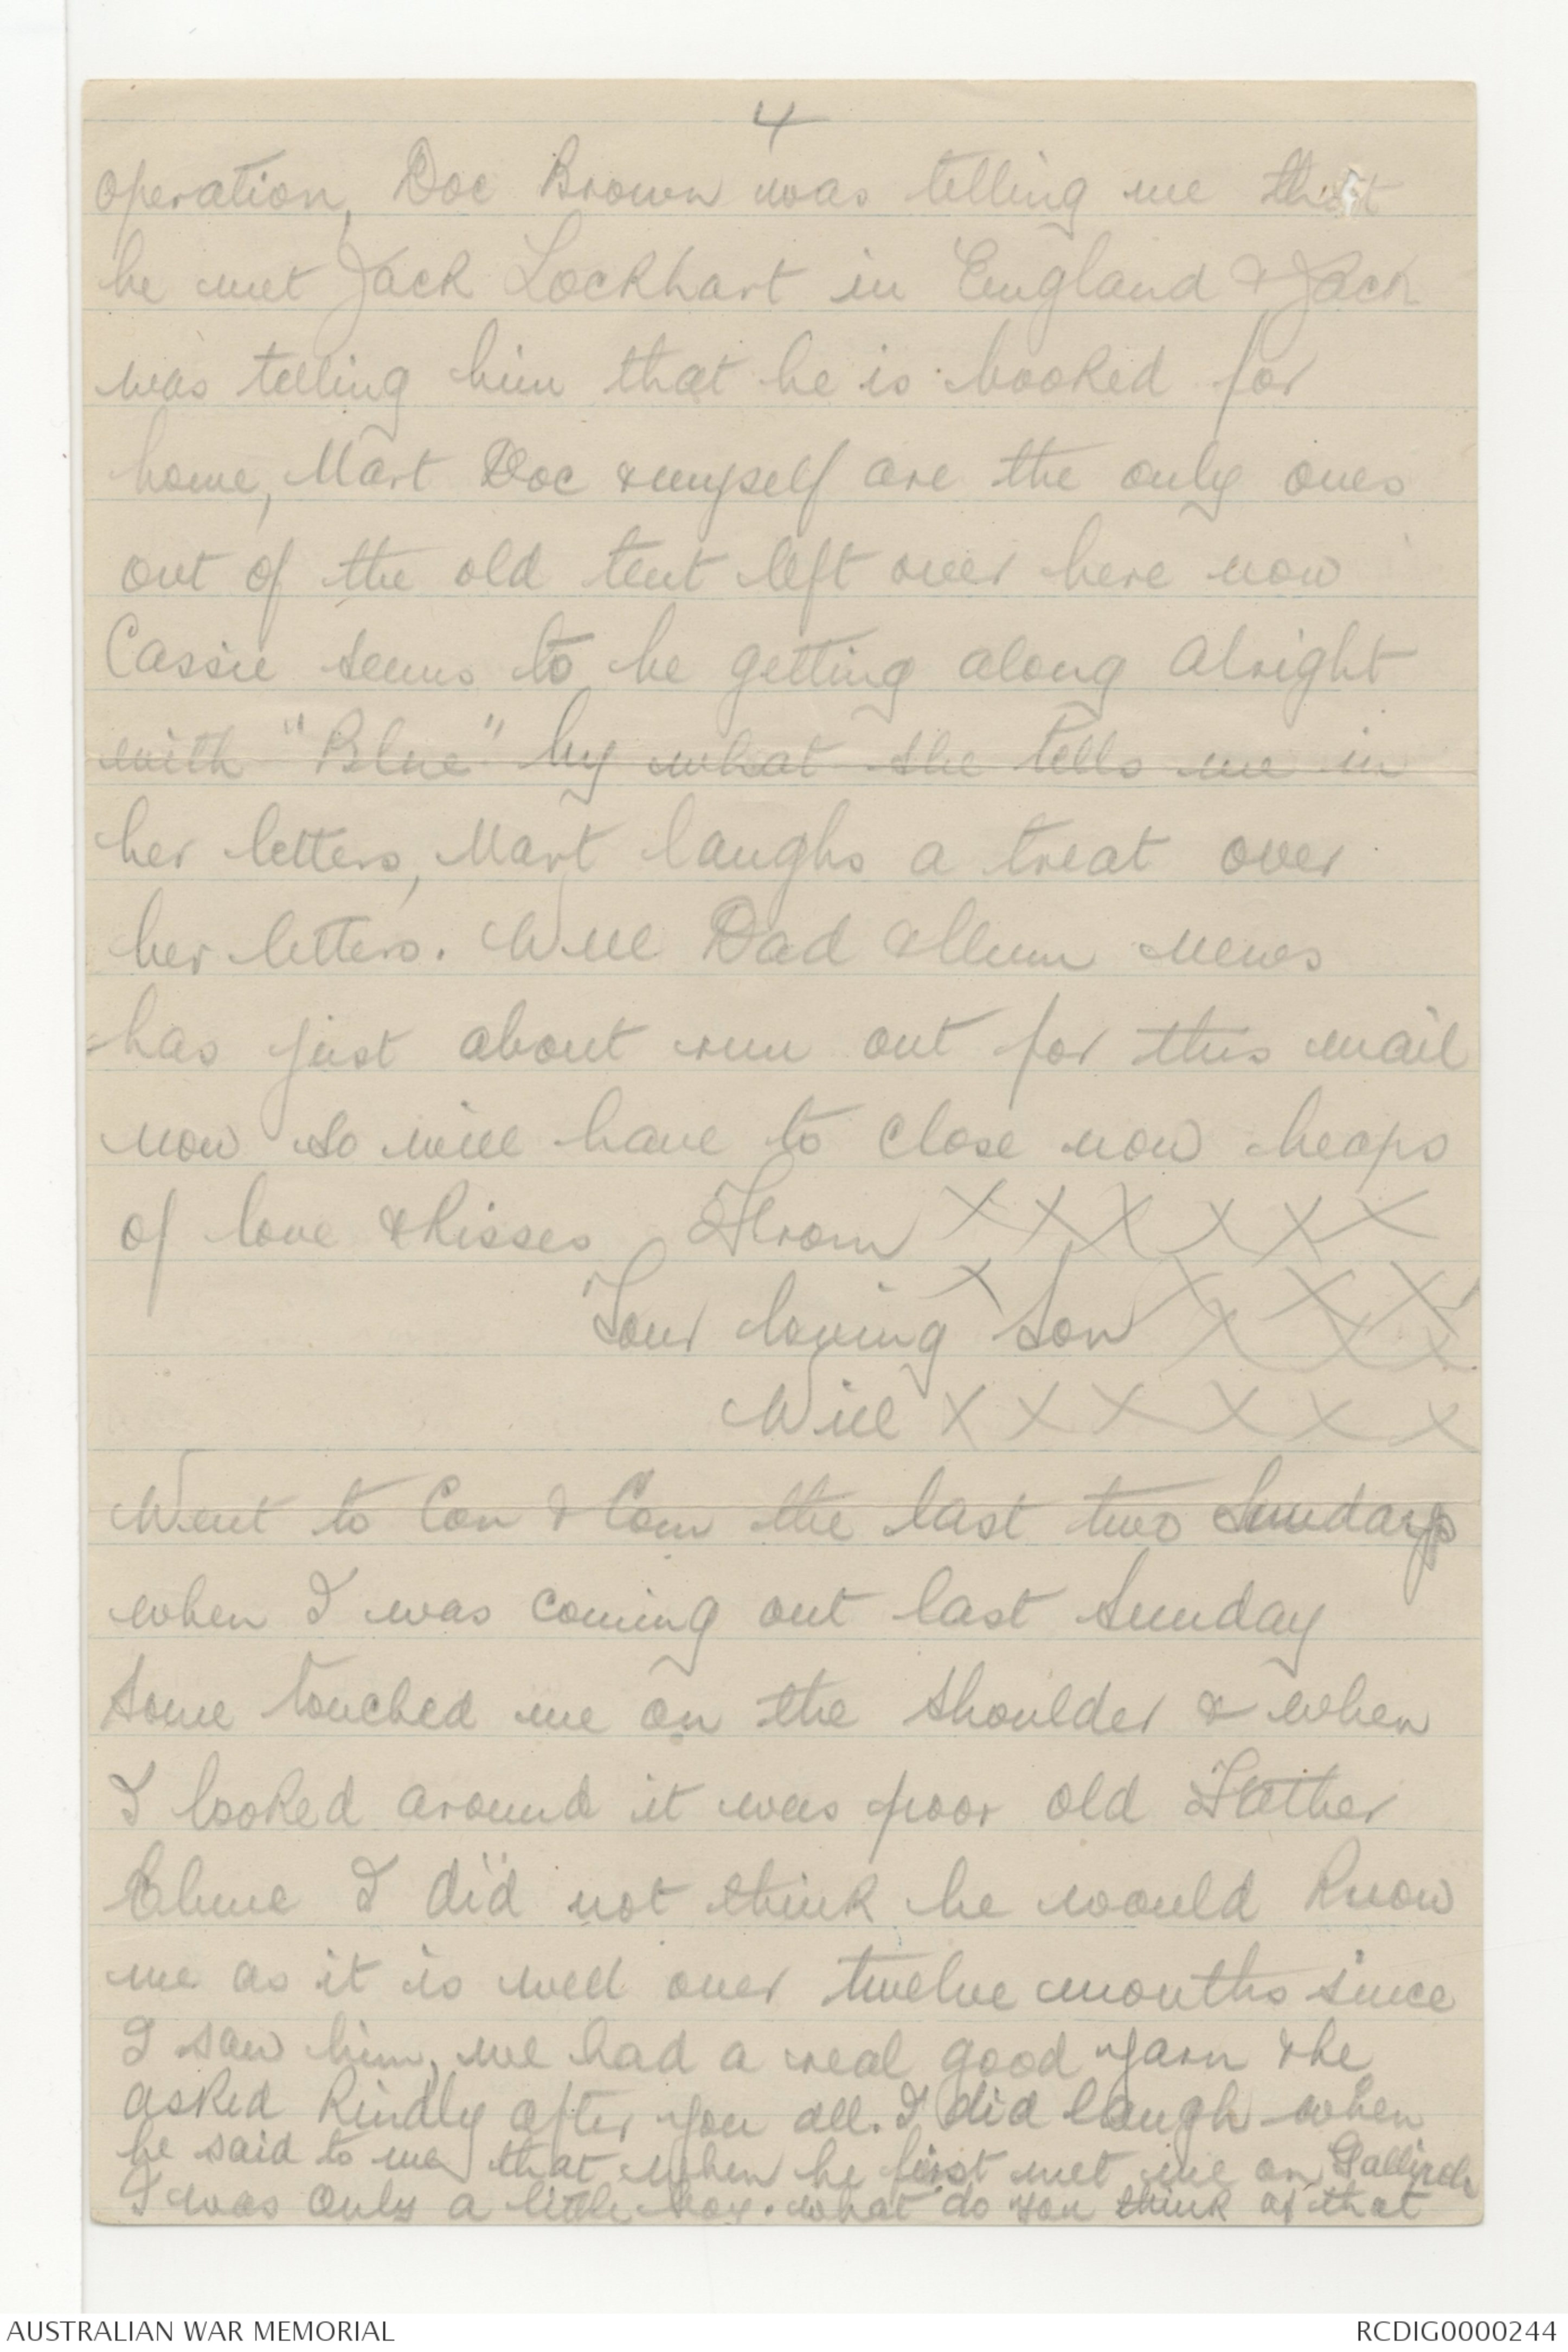 4
operation, Doc Brown was telling me that
he met Jack Lockhart in England & Jack
was telling him that he is booked for
home, Mart Doc & myself are the only ones
out of the old tent left over here now
Cassie seems to be getting along alright
with "Blue" by what she tells me in
her letters, Mart laughs a treat over
her letters. Well Dad & Mum news
has just about run out for this mail
now so will have to close now heaps
of love & kisses From X X X X X X
X X X X
Your loving Son X X X
Will X X X X X X
Went to Con & Com the last two Sundays
when I was coming out last Sunday
some touched me on the shoulder & when
I looked around it was poor old Father
I did not think he would know
me as it is well over twelve months since
I saw him, we had a real good yarn & he
asked kindly after you all. I did laugh when
he said to me that when he first met me on Gallipoli
I was only a little boy. what do you think of that
AUSTRALIAN WAR MEMORIAL
RCDIG0000244